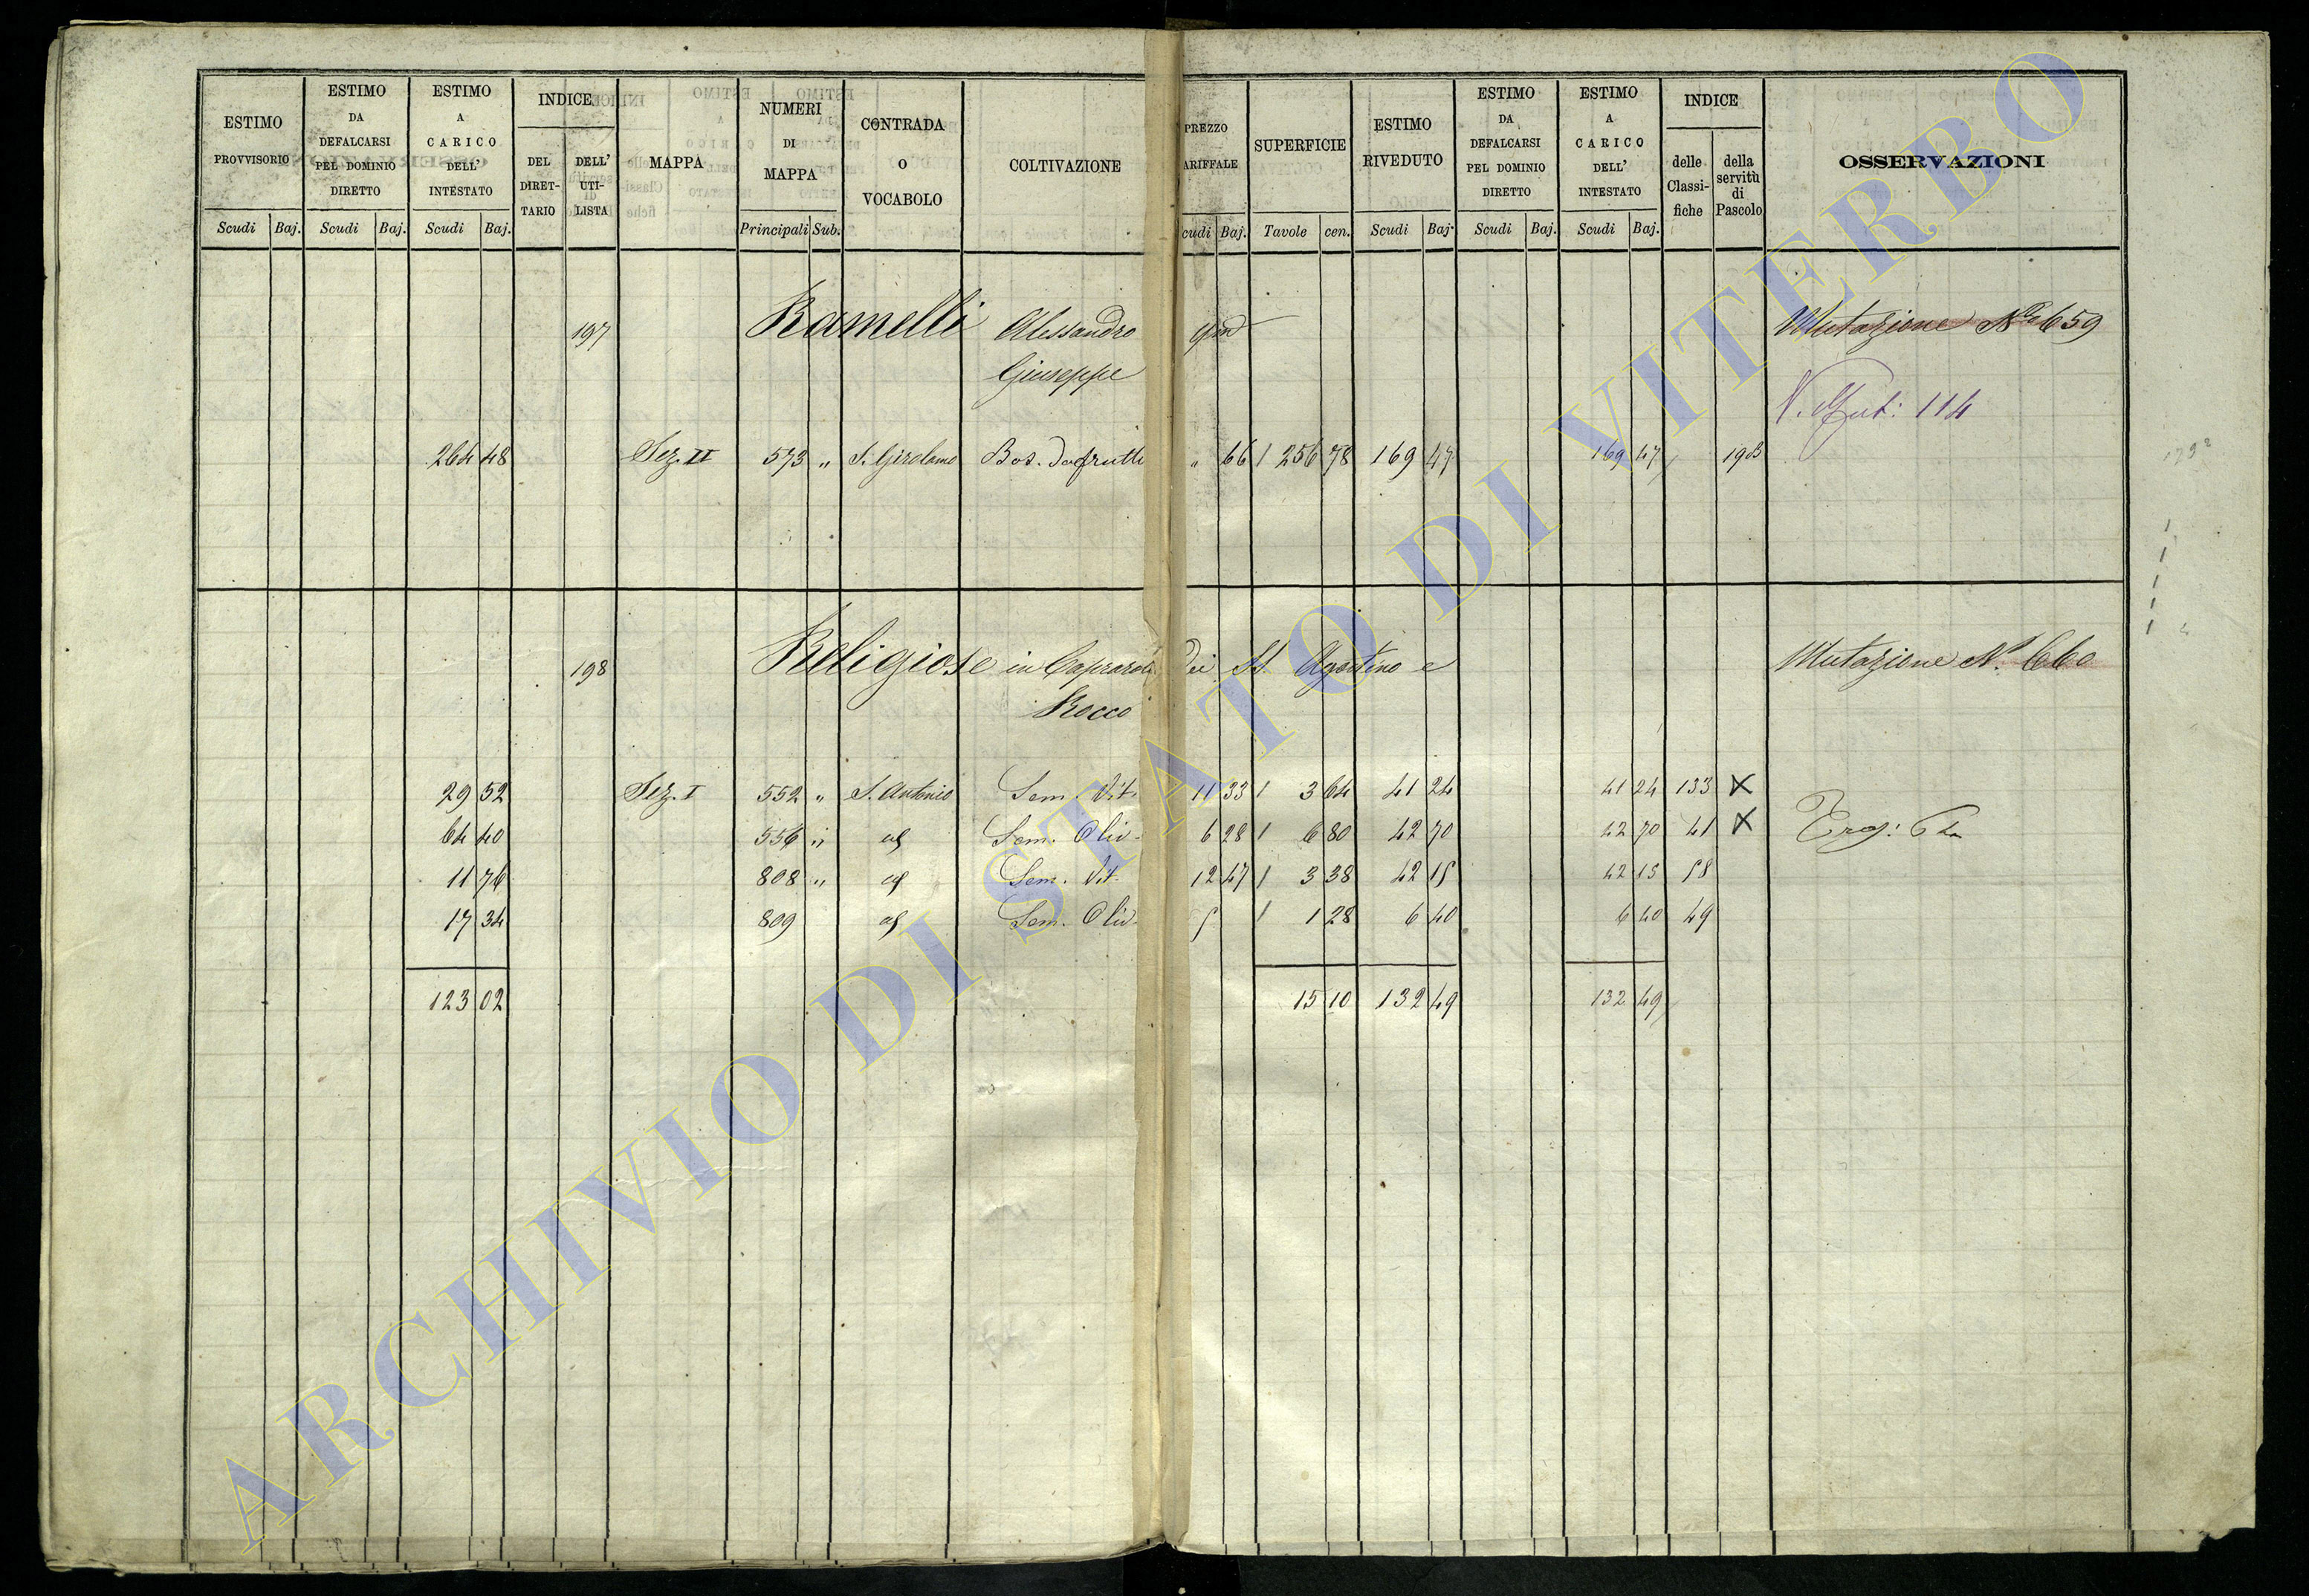 ESTIMO PROVVISORIO
ESTIMO DA DEFALCARSI PEL DOMINIO DIRETTO
ESTIMO A CARICO DELL' INTESTATO
INDICE
DEL DIRET-TARIO
DELL' UTI-LISTA
MAPPA
NUMERI DI MAPPA
CONTRADA O VOCABOLO
COLTIVAZIONE
PREZZO ARIFFALE
SUPERFICIE
ESTIMO RIVEDUTO
ESTIMO DA DEFALCARSI PEL DOMINIO DIRETTO
ESTIMO A CARICO DELL' INTESTATO
INDICE
delle Classi-fiche
della servitù di Pascolo
OSSERVAZIONI
Scudi Baj. Scudi Baj. Scudi Baj. Principali Sub. cudi Baj. Tavole cen. Scudi Baj. Scudi Baj. Scudi Baj.
197 Ramelli Alessandro qm Mutazione No 659
Giuseppe
N. Mut: 114
264 48 Sez. II 573 " S. Girolamo Bos. da frutto " 66 1 256 78 169 47 169 47 198
198 Religiose in Caprarola dei SS. Agostino e Mutazione N. 660
Rocco
29 52 Sez. I 552 " S. Antonio Sem. Vit. 11 33 1 3 64 41 24 41 24 133 X
64 40 556 " id Sem. Oliv. 6 28 1 6 80 42 70 42 70 41 X
11 76 808 " id Sem. Vit. 12 47 1 3 38 42 15 42 15 58
17 34 809 id Sem. Oliv. 5 1 1 28 6 40 6 40 49
123 02 15 10 132 49 132 49
ARCHIVIO DI STATO DI VITERBO